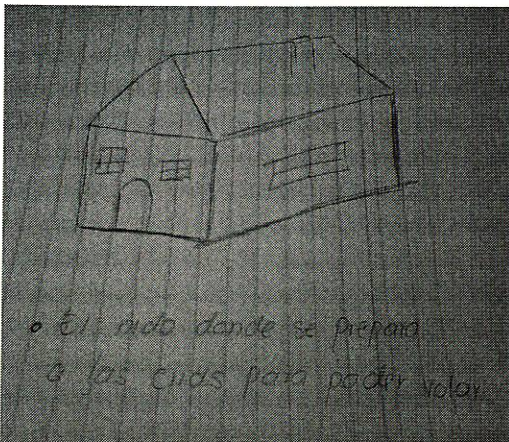 • El nido donde se prepara
a las crias para poder volar.